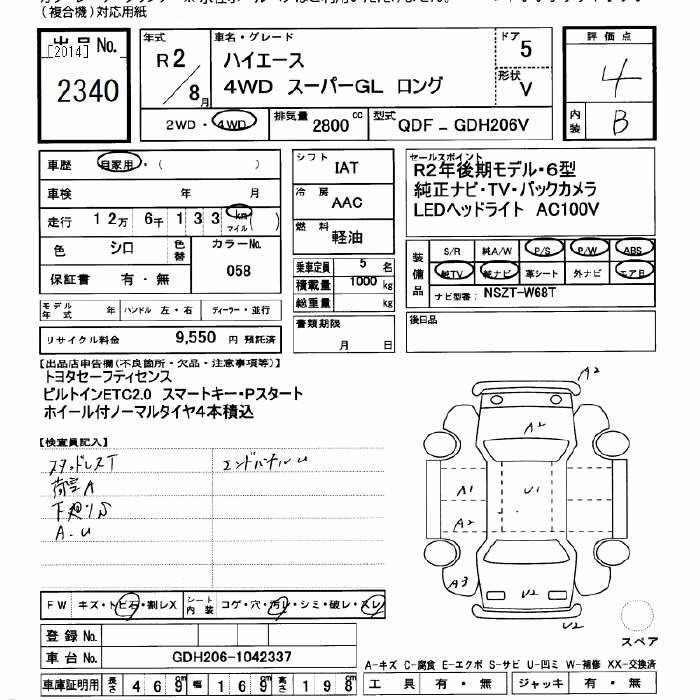 (複合機)対応用紙
出品No.
[2014]
2340
年式
R2/8月
車名・グレード
ハイエース
4WD スーパーGL ロング
ドア
5
形状
V
評価点
4
内装
B
2WD・4WD
排気量 2800cc
型式 QDF－GDH206V
車歴 自家用・( )
車検 年 月
走行 12万 6千 1 3 3 km マイル ( )
色 シロ 色替 カラーNo.
058
保証書 有・無
モデル年式 年 ハンドル 左・右 ディーラー・並行
リサイクル料金 9,550 円 預託済
シフト IAT
冷房 AAC
燃料 軽油
乗車定員 5 名
積載量 1000 kg
総重量 kg
書類期限
月 日
セールスポイント
R2年後期モデル・6型
純正ナビ・TV・バックカメラ
LEDヘッドライト AC100V
装備品
S/R 純A/W P/S P/W ABS
純TV 純ナビ 革シート 外ナビ エアB
ナビ型番: NSZT-W68T
後日品
【出品店申告欄(不良箇所・欠品・注意事項等)】
トヨタセーフティセンス
ビルトインETC2.0 スマートキー・Pスタート
ホイール付ノーマルタイヤ4本積込
【検査員記入】
スタッドレスT
荷室A
下廻りS
A.U
A2
A2
A1
U1
A2
A3
U2
U2
スペア
FW キズ・トビ石・割レX シート内装 コゲ・穴・汚レ・シミ・破レ・スレ
登録No.
車台No. GDH206-1042337
A-キズ C-腐食 E-エクボ S-サビ U-凹ミ W-補修 XX-交換済
車庫証明用 長さ 469cm 幅 169cm 高さ 198cm
工具 有・無 ジャッキ 有・無